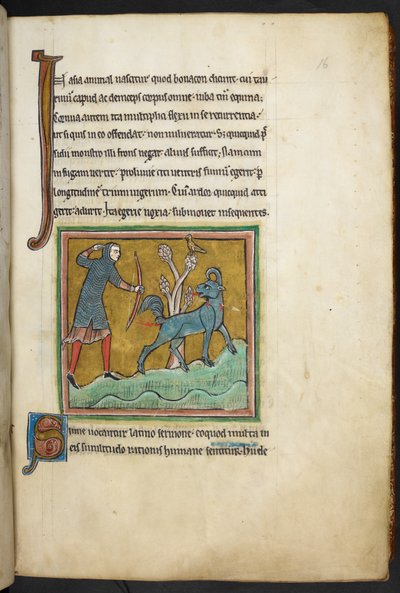 16
In asia animal nascitur quod bonacon dicunt. cui tau
rinum capud ac deinceps corpus omne. iuba tantum equina;
Cornua autem ita multiplici flexu in se recurrentia.
ut siquis in eo offendat. non vulneretur. Sed quicquid pre
sidii monstro illi frons negat. alvus sufficit. Nam cum
in fugam vertit. proluvie citi ventris fimum egerit. per
longitudinem trium iugerum. Cuius ardor quicquid atti
gerit. adurit. Ita egerie noxia. submovet insequentes.
Simie vocantur latino sermone. eo quod multa in
eis similitudo rationis humane sentitur. Hii de